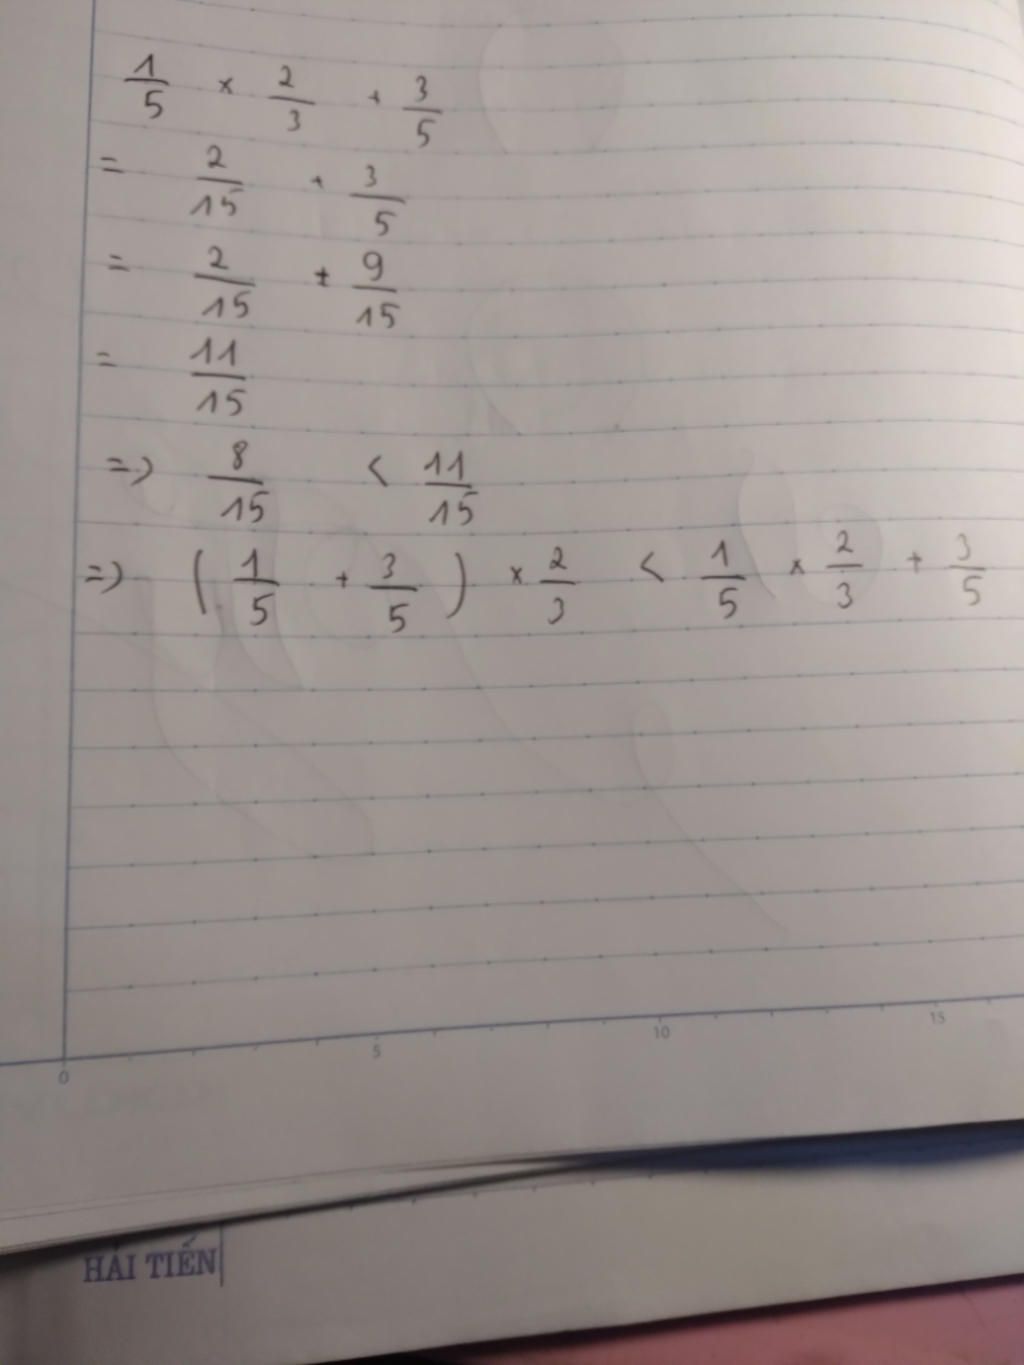 1/5 × 2/3 + 3/5
= 2/15 + 3/5
= 2/15 + 9/15
= 11/15
=> 8/15 < 11/15
=> (1/5 + 3/5) × 2/3 < 1/5 × 2/3 + 3/5
0 5 10 15
HẢI TIẾN